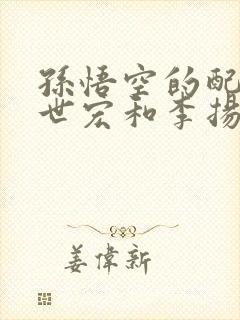 孫悟空的配
世宏和李揚
姜偉新